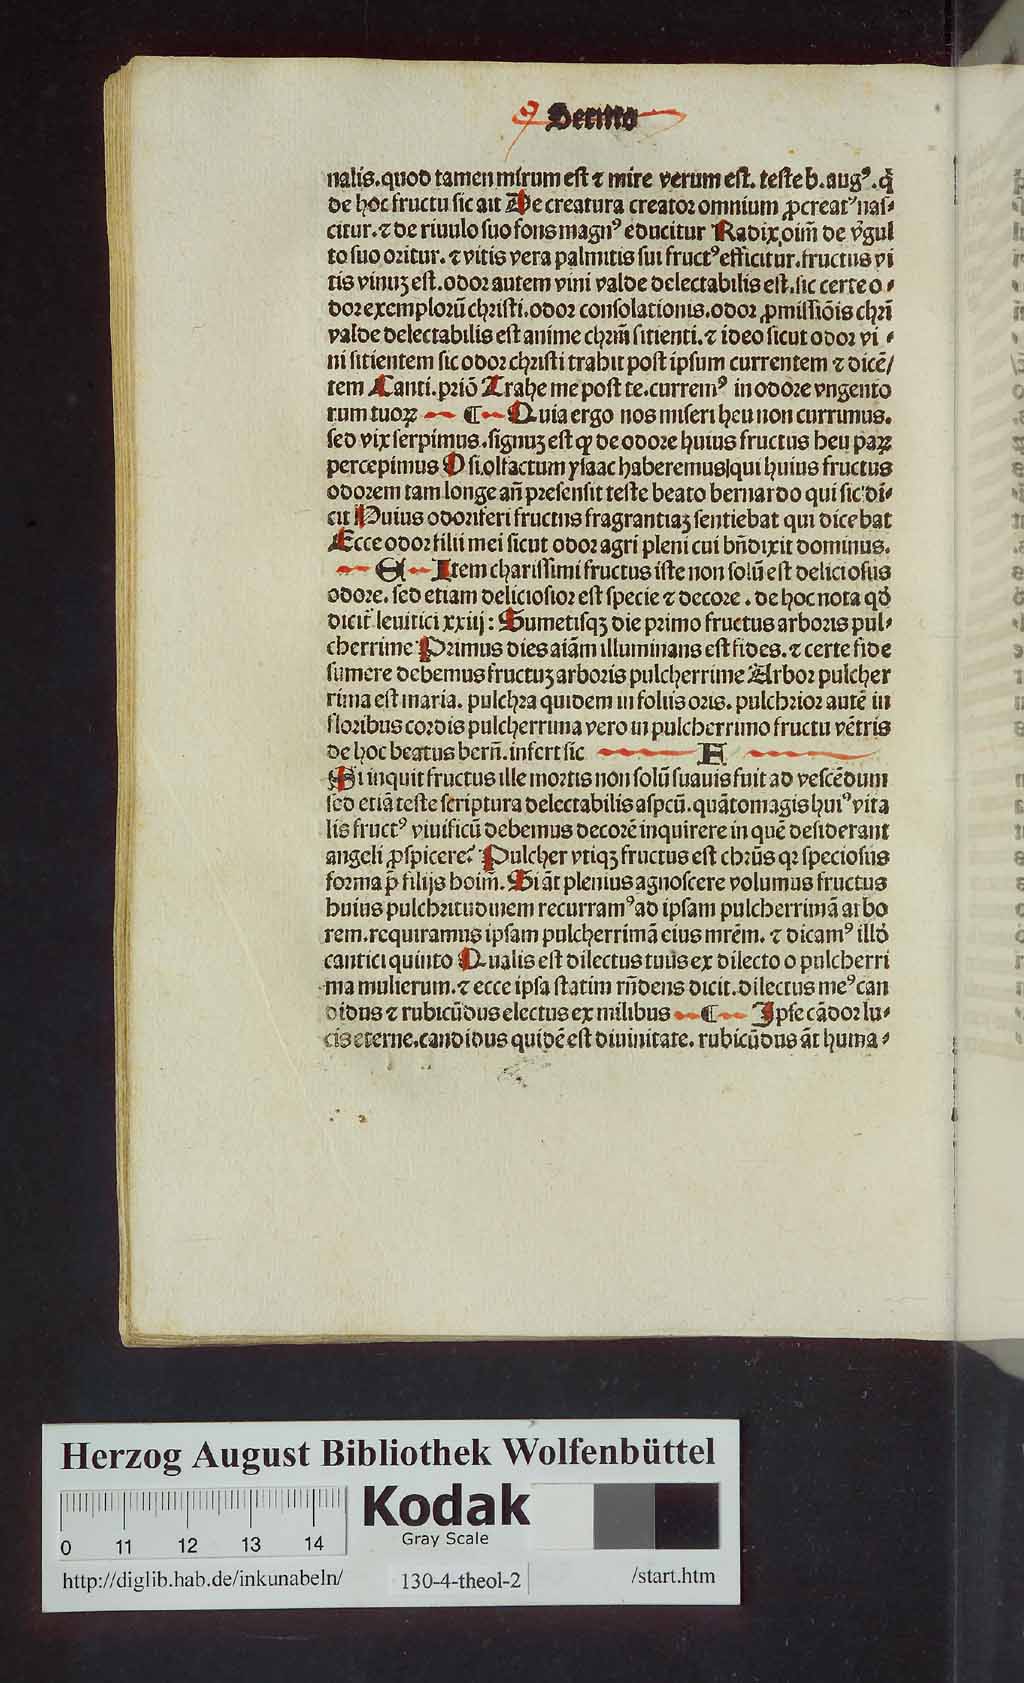 Sermo
nalis.quod tamen mirum est ⁊ mire verum est. teste b.augꝰ.q̄
de hoc fructu sic ait De creatura creator omnium ꝓcreat᷑ nas⸗
citur.⁊ de riuulo suo fons magnꝰ educitur Radix oīm de v̄gul
to suo oritur. ⁊ vitis vera palmitis sui fructꝰ efficitur.fructus vi
tis vinuꝫ est.odor autem vini valde delectabilis est.sic certe o⸗
dor exemplorū christi.odor consolationis.odor ꝓmissiōis chrī
valde delectabilis est anime chrm̄ sitienti.⁊ ideo sicut odor vi⸗
ni sitientem sic odor christi trahit post ipsum currentem ⁊ dicē/
tem Canti.priō Trahe me post te.curremꝰ in odore vngento
rum tuoꝝ ¶ Quia ergo nos miseri heu non currimus.
sed vix serpimus.signuꝫ est ꝙ de odore huius fructus heu paꝝ
percepimus O si olfactum ysaac haberemus|qui huius fructus
odorem tam longe an̄ presensit teste beato bernardo qui sic di⸗
cit Huius odoriferi fructus fragrantiaꝫ sentiebat qui dicebat
Ecce odor filii mei sicut odor agri pleni cui bn̄dixit dominus.
E Item charissimi fructus iste non solū est deliciosus
odore.sed etiam deliciosior est specie ⁊ decore.de hoc nota qd̓
dicit᷑ leuitici xxiij: Sumetisqꝫ die primo fructus arboris pul⸗
cherrime Primus dies aīam illuminans est fides.⁊ certe fide
sumere debemus fructuꝫ arboris pulcherrime Arbor pulcher
rima est maria. pulchra quidem in foliis oris. pulchrior autē in
floribus cordis pulcherrima vero in pulcherrimo fructu vētris
de hoc beatus bern̄.infert sic F
Si inquit fructus ille mortis non solū suauis fuit ad vescēdum
sed etiā teste scriptura delectabilis aspcū.quātomagis huiꝰ vita
lis fructꝰ viuificū debemus decorē inquirere in quē desiderant
angeli ꝓspicere? Pulcher vtiqꝫ fructus est chrūs qꝛ speciosus
forma p̄ filijs hoīm. Si āt plenius agnoscere volumus fructus
huius pulchritudinem recurramꝰ ad ipsam pulcherrimā arbo
rem.requiramus ipsam pulcherrimā eius mrēm. ⁊ dicamꝰ illd̓
cantici quinto Qualis est dilectus tuus ex dilecto o pulcherri
ma mulierum.⁊ ecce ipsa statim rn̄dens dicit.dilectus meꝰ can
didus ⁊ rubicūdus electus ex milibus ¶ Ipse cādor lu⸗
cis eterne.candidus quidē est diuinitate. rubicūdus āt huma⸗
Herzog August Bibliothek Wolfenbüttel
Kodak
Gray Scale
0 11 12 13 14
http://diglib.hab.de/inkunabeln/ 130-4-theol-2 /start.htm